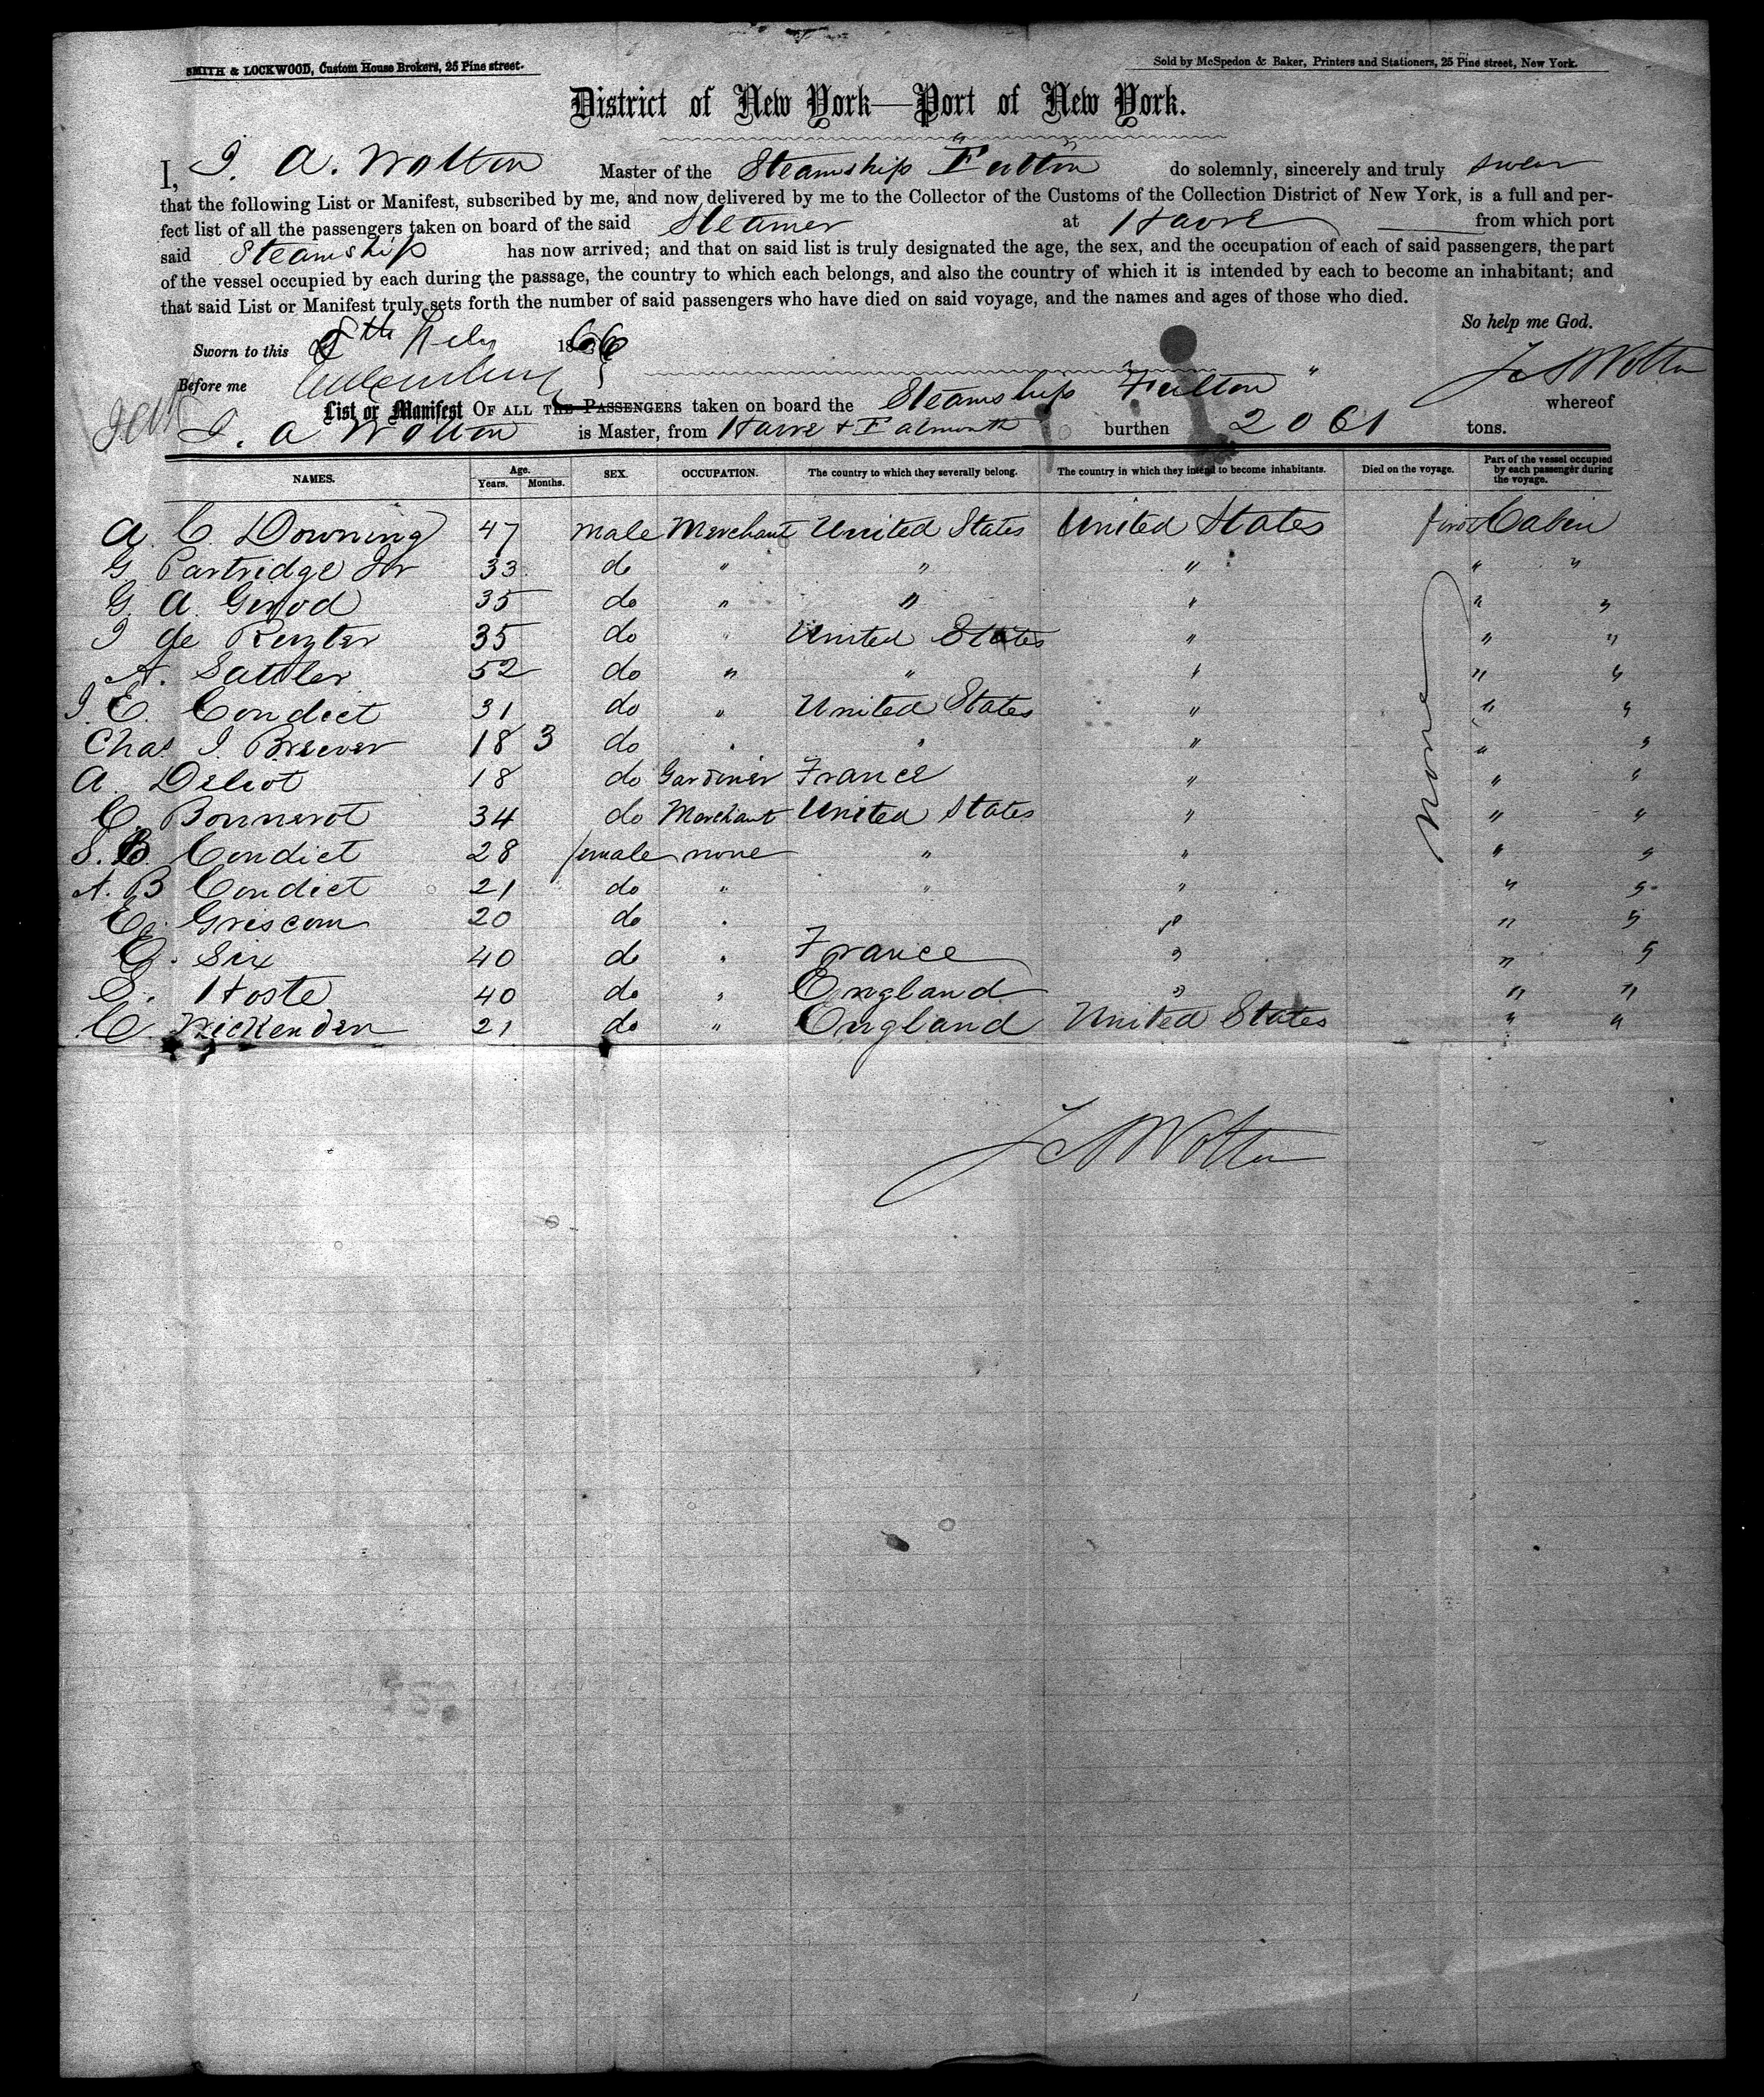 SMITH & LOCKWOOD, Custom House Brokers, 25 Pine street.
Sold by McSpedon & Baker, Printers and Stationers, 25 Pine street, New York.
District of New York—Port of New York.
I, J. A. Wotton Master of the Steamship Fulton do solemnly, sincerely and truly swear
that the following List or Manifest, subscribed by me, and now delivered by me to the Collector of the Customs of the Collection District of New York, is a full and per-
fect list of all the passengers taken on board of the said Steamer at Havre from which port
said Steamship has now arrived; and that on said list is truly designated the age, the sex, and the occupation of each of said passengers, the part
of the vessel occupied by each during the passage, the country to which each belongs, and also the country of which it is intended by each to become an inhabitant; and
that said List or Manifest truly sets forth the number of said passengers who have died on said voyage, and the names and ages of those who died.
So help me God.
Sworn to this 8th Feby 1866
Before me J A Wotton
List or Manifest OF ALL THE PASSENGERS taken on board the Steamship Fulton " whereof
J. A Wotton is Master, from Havre + Falmouth burthen 2061 tons.
NAMES. Age. Years. Months. SEX. OCCUPATION. The country to which they severally belong. The country in which they intend to become inhabitants. Died on the voyage. Part of the vessel occupied by each passenger during the voyage.
A. C. Downing 47 male Merchant United States United States first Cabin
G Partridge Jr 33 do " " " " "
G. A. Girod 35 do " " " " "
J de Ruyter 35 do " United States " " "
A. Sattler 52 do " " " " "
J. E. Condict 31 do " United States " " "
Chas J Brewer 18 3 do " " " " "
A. Deliot 18 do Gardiner France " " "
C. Bonnerot 34 do Merchant United States " " "
S. B. Condict 28 female none " " " "
A. B Condict 21 do " " " " "
E. Griscom 20 do " " " "
E. Six 40 do " France " " "
S. Hoste 40 do " England " " "
C. Wickenden 21 do " England United States " "
None
J A Wotton